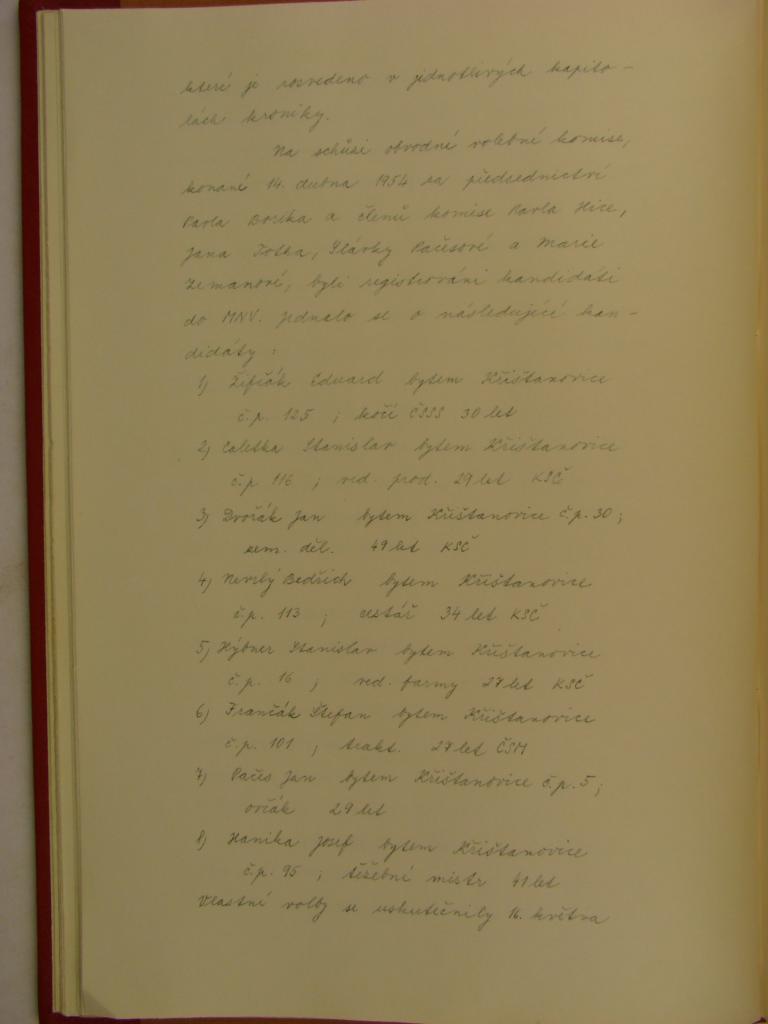 které je rozvedeno v jednotlivých kapito-
lách kroniky.
Na schůzi obvodní volební komise,
konané 14. dubna 1954 za předsednictví
Pavla Borska a členů komise Pavla Hice,
Jana Totka, Slávky Pačesové a Marie
Zemanové, byli registrováni kandidáti
do MNV. Jednalo se o následující kan-
didáty:
1) Žifčák Eduard bytem Křišťanovice
č.p. 125 ; kočí ČSSS 30 let
2) Caletka Stanislav bytem Křišťanovice
č.p 116 ; ved. prod. 29 let KSČ
3) Dvořák Jan bytem Křišťanovice č.p. 30 ;
zem. děl. 49 let KSČ
4) Bedřich bytem Křišťanovice
č.p. 113 ; cestář 34 let KSČ
5) Hýbner Stanislav bytem Křišťanovice
č.p. 16 ; ved. farmy 27 let KSČ
6) Frančák Štefan bytem Křišťanovice
č.p. 101 ; trakt. 27 let ČSM
7) Pačes Jan bytem Křišťanovice č.p. 5 ;
ovčák 29 let
8) Hanika Josef bytem Křišťanovice
č.p. 95 ; těžební mistr 41 let
Vlastní volby se uskutečnily 16. května